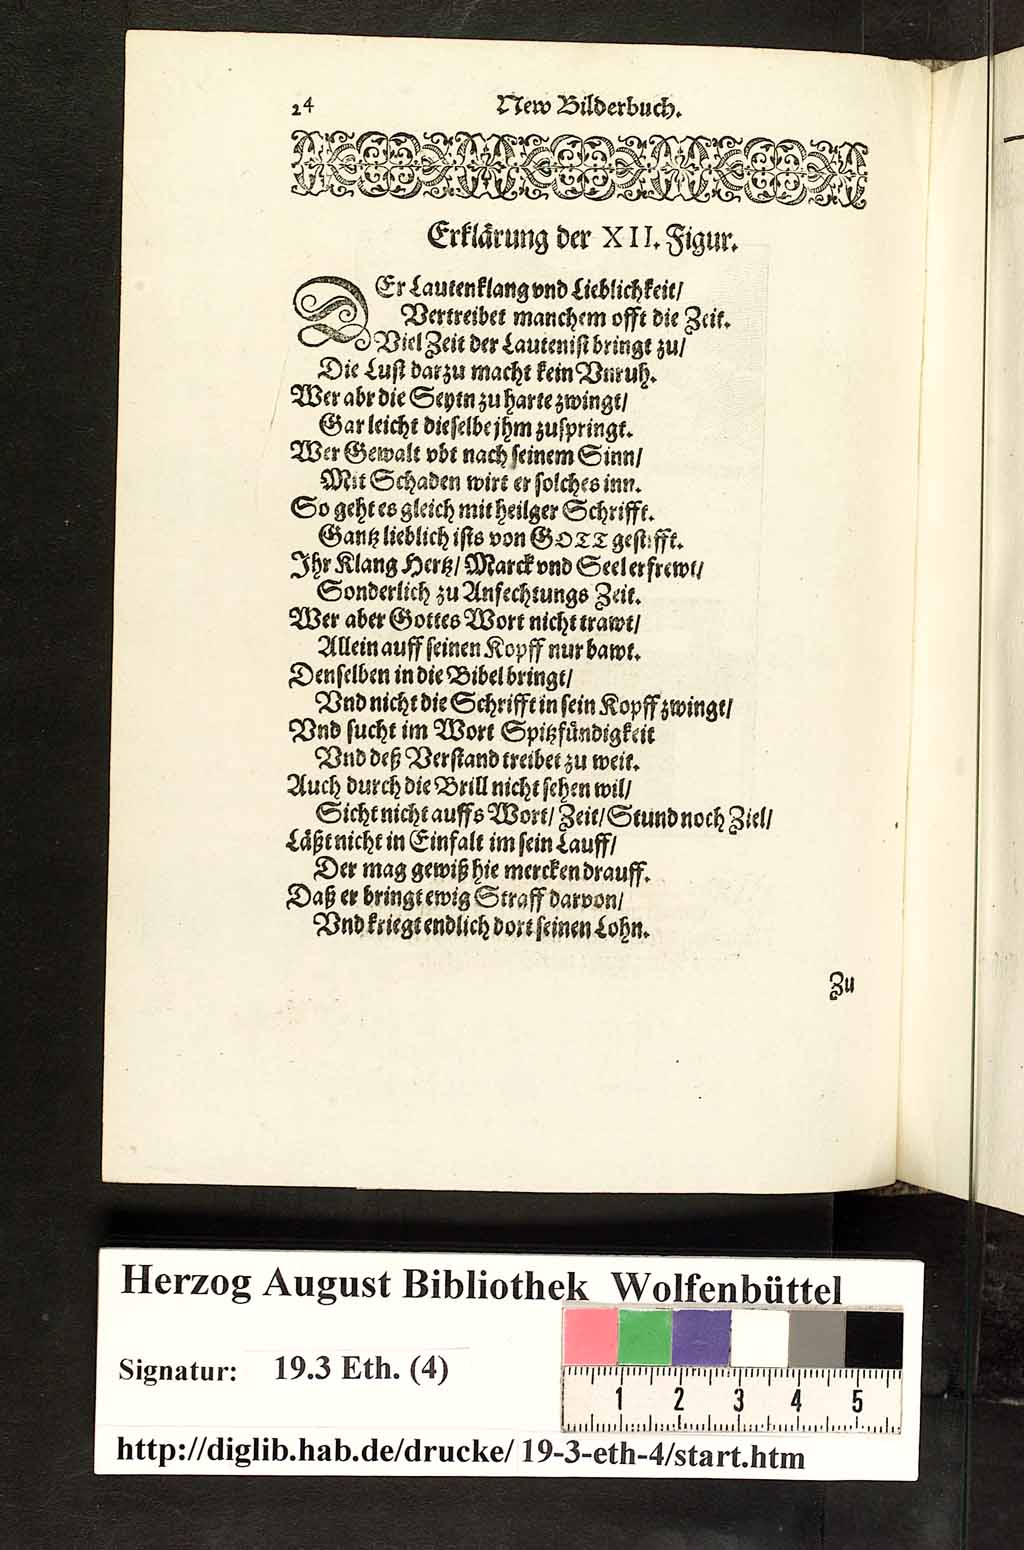 24 New Bilderbuch.
Erklärung der XII. Figur.
DEr Lautenklang vnd Lieblichkeit/
Vertreibet manchem offt die Zeit.
Viel Zeit der Lautenist bringt zu/
Die Lust darzu macht kein Vnruh.
Wer abr die Seytn zu harte zwingt/
Gar leicht dieselbe jhm zuspringt.
Wer Gewalt vbt nach seinem Sinn/
Mit Schaden wirt er solches inn.
So geht es gleich mit heilger Schrifft.
Gantz lieblich ists von GOTT gestifft.
Jhr Klang Hertz/ Marck vnd Seel erfrewt/
Sonderlich zu Anfechtungs Zeit.
Wer aber Gottes Wort nicht trawt/
Allein auff seinen Kopff nur bawt.
Denselben in die Bibel bringt/
Vnd nicht die Schrifft in sein Kopff zwingt/
Vnd sucht im Wort Spitzfündigkeit
Vnd deß Verstand treibet zu weit.
Auch durch die Brill nicht sehen wil/
Sicht nicht auffs Wort/ Zeit/ Stund noch Ziel/
Läßt nicht in Einfalt im sein Lauff/
Der mag gewiß hie mercken drauff.
Daß er bringt ewig Straff darvon/
Vnd kriegt endlich dort seinen Lohn.
Zu
Herzog August Bibliothek Wolfenbüttel
Signatur: 19.3 Eth. (4)
1 2 3 4 5
http://diglib.hab.de/drucke/ 19-3-eth-4/start.htm